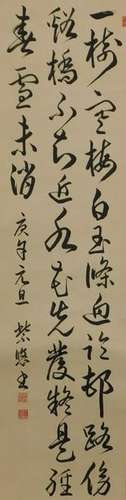 一樹寒梅白玉條迥臨邨路傍
谿橋不知近水花先發疑是經
春雪未消 庚午元旦 紫書